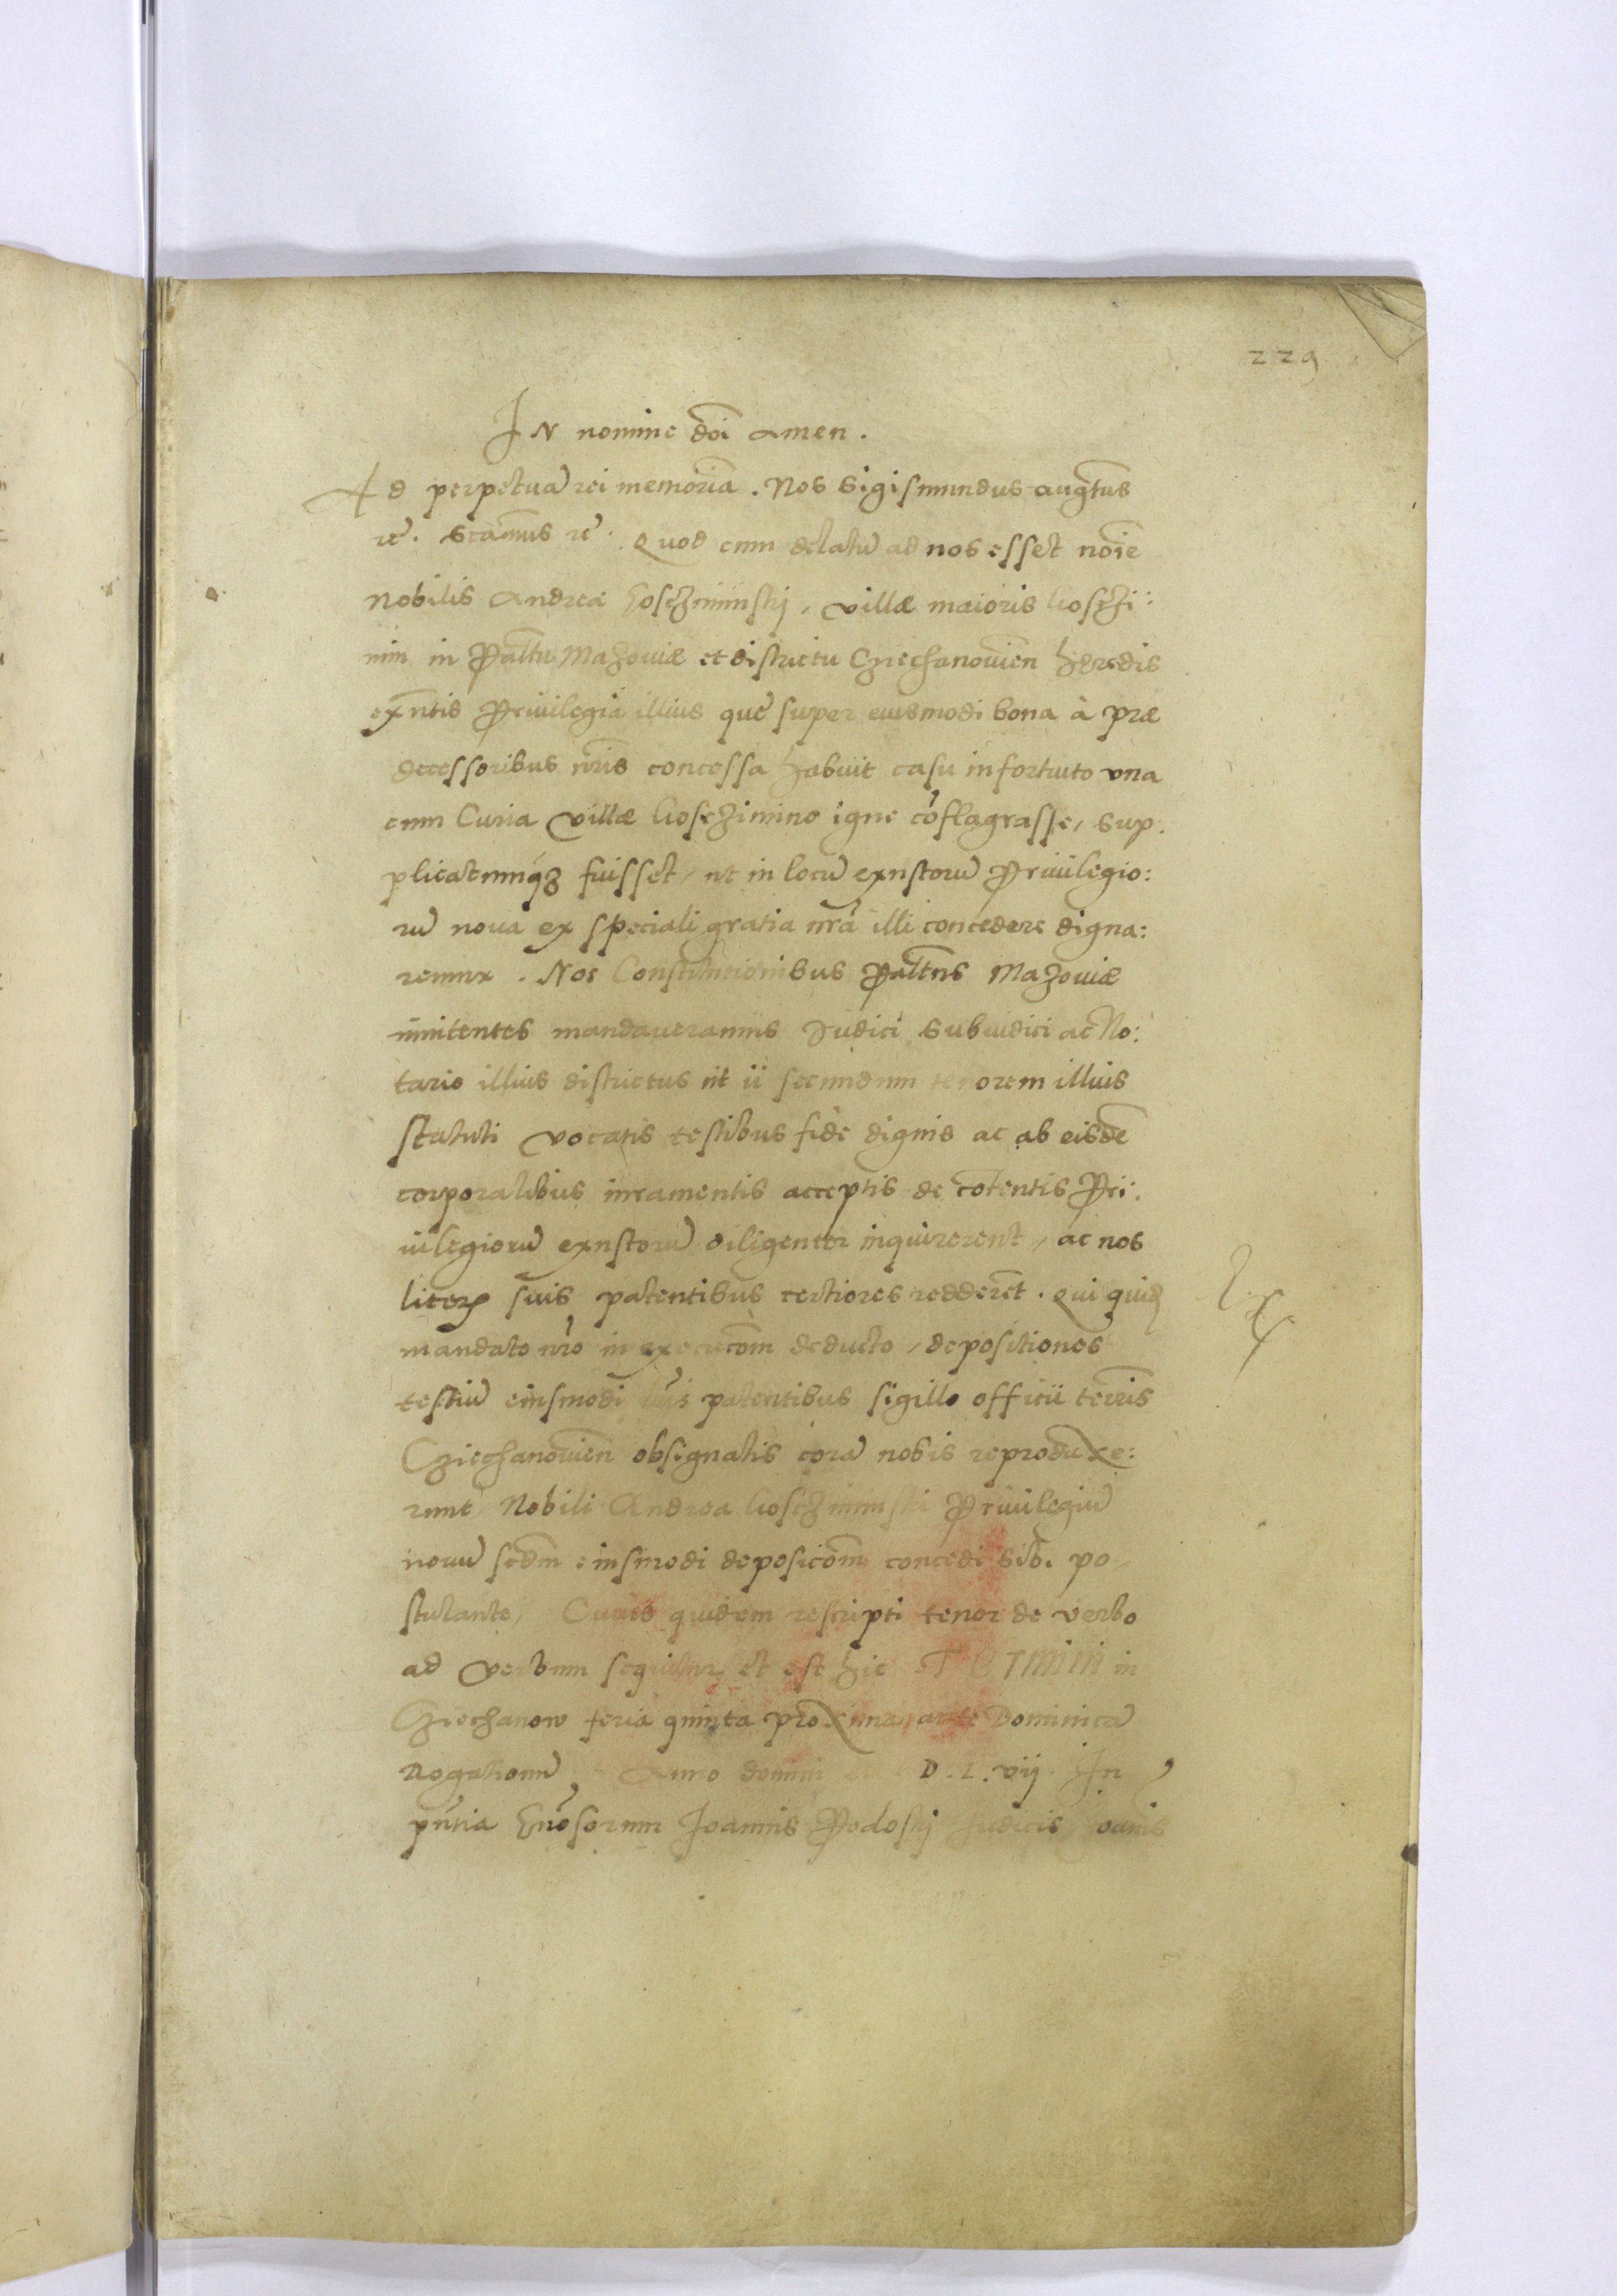 229
In nomine dñi amen.
Ad perpetuã rei memoriã. Nos Sigismundus Augtus
rc̃. Sc̃amus rc̃. Quod cum delatũ ad nos esset noĩe
Nobilis Andreæ Gosczimiinskj, villæ maioris Gosczi:
min in Palt̃tu Mazouiæ et districtu Cziechanowieñ heredis
exñtis Priuilegia illius quę super eiusmodi bona à præ
decessoribus nr̃is concessa habuit casu infortuito vna
cum Curia villæ Gosczimino igne cõflagrasse, sup.
plicatumq3 fuisset, ut in locũ exustorũ Priuilegio:
rũ noua ex speciali gratia nr̃a illi concedere digna:
remur. Nos Constitutionibus Palt̃tus Mazouiæ
innitentes mandaueramus Iudici Subiudici ac No:
tario illius districtus ut ii secundum tenorem illius
statuti vocatis testibus fide dignis ac ab eisdẽ
corporalibus iuramentis acceptis de cõtentis Pri:
uilegiorũ exustorũ diligenter inquirerent, ac nos
literis suis patentibus certiores redderẽt. Qui quidẽ
mandato nr̃o in executõm deducto, depositiones
testiũ eiusmodi lr̃is patentibus sigillo officii terr̃is
Cziechanowieñ obsignatis corã nobis reproduxe:
runt Nobili Andrea Gosczimiinski Priuilegiũ
nouũ scdm̃ eiusmodi depositõm concedi sibi po
stulante, Cuius quidem rescripti tenor de verbo
ad verbum sequitur et est hic in
Cziechanow feria quinta proxima ante Dominicã
Rogationũ Anno domini D.L.vij. In
pñtia Gnõsorum Joannis Podoskj Iudicis